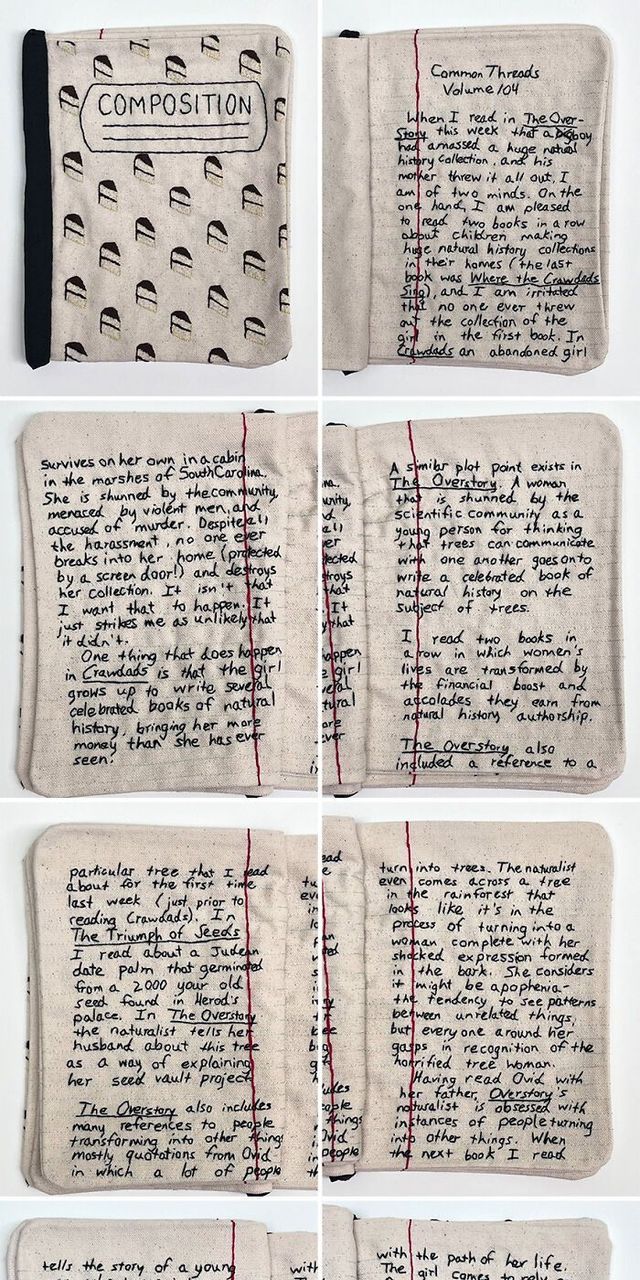 COMPOSITION
Common Threads
Volume 104
When I read in The Over-
Story this week that a boy
had amassed a huge natural
history collection, and his
mother threw it all out, I
am of two minds. On the
one hand, I am pleased
to read two books in a row
about children making
huge natural history collections
in their homes (the last
book was Where the Crawdads
Sing), and I am irritated
that no one ever threw
out the collection of the
girl in the first book. In
Crawdads an abandoned girl
survives on her own in a cabin
in the marshes of South Carolina.
She is shunned by the community,
menaced by violent men, and
accused of murder. Despite all
the harassment, no one ever
breaks into her home (protected
by a screen door!) and destroys
her collection. It isn't that
I want that to happen. It
just strikes me as unlikely that
it didn't.
One thing that does happen
in Crawdads is that the girl
grows up to write several
celebrated books of natural
history, bringing her more
money than she has ever
seen.
A similar plot point exists in
The Overstory. A woman
that is shunned by the
scientific community as a
young person for thinking
that trees can communicate
with one another goes on to
write a celebrated book of
natural history on the
subject of trees.
I read two books in
a row in which women's
lives are transformed by
the financial boost and
accolades they earn from
natural history authorship.
The Overstory also
included a reference to a
particular tree that I read
about for the first time
last week (just prior to
reading Crawdads). In
The Triumph of Seeds
I read about a Judean
date palm that germinated
from a 2000 your old
seed found in Herod's
palace. In The Overstory
the naturalist tells her
husband about this tree
as a way of explaining
her seed vault project.
The Overstory also includes
many references to people
transforming into other things
mostly quotations from Ovid
in which a lot of people
turn into trees. The naturalist
even comes across a tree
in the rainforest that
looks like it's in the
process of turning into a
woman complete with her
shocked expression formed
in the bark. She considers
it might be apophenia-
the tendency to see patterns
between unrelated things,
but everyone around her
gasps in recognition of the
horrified tree woman.
Having read Ovid with
her father, Overstory's
naturalist is obsessed with
instances of people turning
into other things. When
the next book I read
tells the story of a young
with the path of her life.
The girl comes to